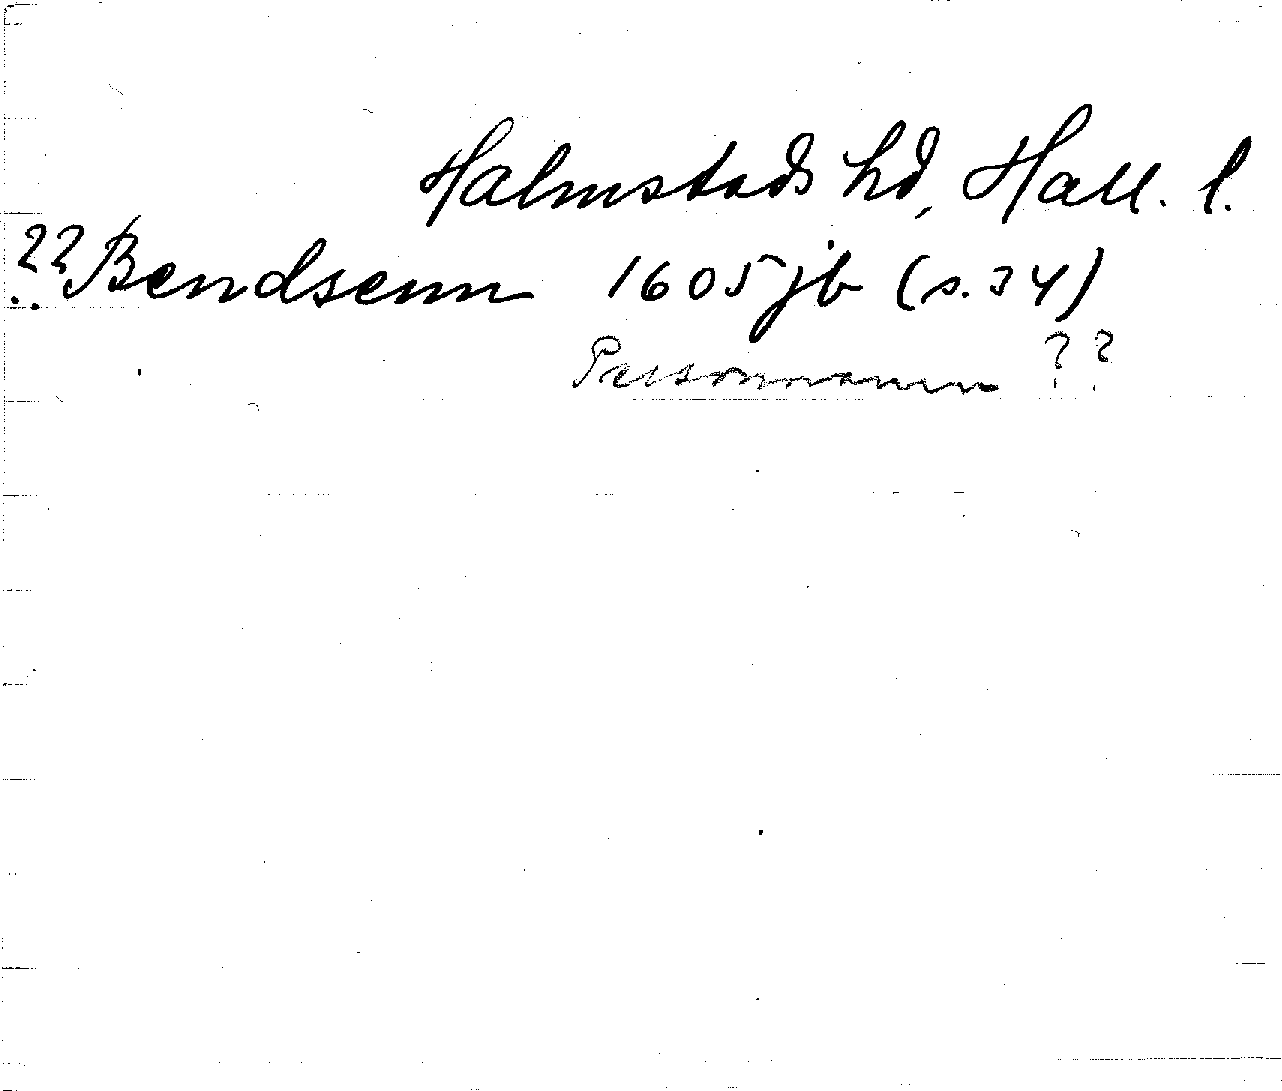 Halmstads hd, Hall. l.
?? Bendsenn 1605 jb (s. 34)
Personnamn ??